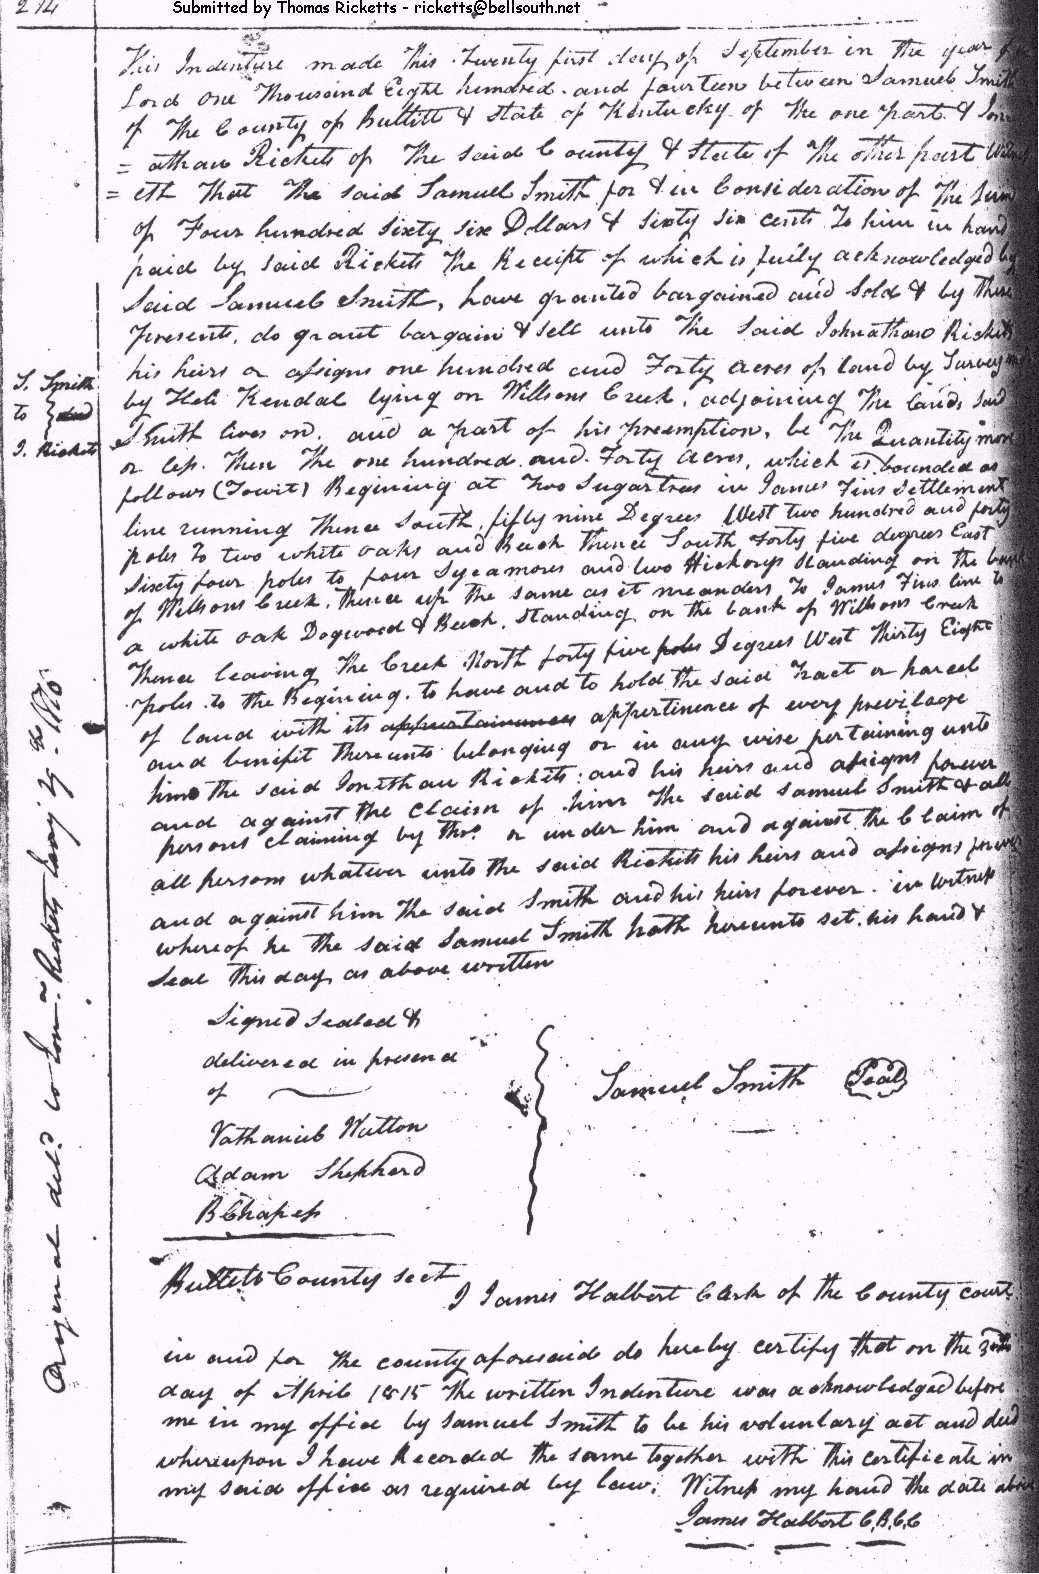 214
Submitted by Thomas Ricketts - ricketts@bellsouth.net
This Indenture made this Twenty first day of September in the year of
Lord one Thousand Eight hundred and fourteen between Samuel Smith
of The County of Bullitt & State of Kentucky of The one part & Jon
= athan Rickets of The said County & State of The other part Witn
= eth That The said Samuel Smith for & in Consideration of The Sum
of Four hundred Sixty Six Dllars & Sixty Six cents To him in hand
paid by said Rickets The Receipt of which is fully acknowledged by
Said Samuel Smith, have granted bargained and Sold & by These
presents, do grant bargain & sell unto The Said Johnathan Rickets
his heirs or assigns one hundred and Forty acres of land by Survey
S. Smith
to } deed
J. Rickets
by Heli Kendal lying on Willsons Creek, adjoining The lands Said
Smith lives on, and a part of his preemption, be The Quantity more
or less. Then The one hundred and Forty acres, which is bounded as
follows (Towit) Begining at Two Sugartrees in James Fins Settlement
line running Thence South, fifty nine Degrees West two hundred and forty
poles To two white oaks and Beech Thence South Forty five degrees East
Sixty four poles to four Sycamores and two Hickorys Standing on the bank
of Willsons Creek, Thence up the same as it meanders To James Fins line to
a white oak Dogwood & Beech, Standing on the bank of Willsons Creek
Thence leaving The Creek North forty five poles Degrees West Thirty Eight
poles to the Begining. to have and to hold the said Tract or parcel
of land with its appurtainances appertinence of every previlage
and benifit thereunto belonging or in any wise pertaining unto
him the said Jonithan Rickets; and his heirs and assigns forever
and against the Claim of him The said Samuel Smith & all
persons claiming by thro. or under him and against the Claim of
all persons whatever unto the said Rickitts his heirs and assigns forever
and against him The said Smith and his heirs forever. in Witness
whereof he the said Samuel Smith hath hereunto set his hand &
Seal this day as above written
Signed Sealed &
delivered in presence
of
Nathaniel Watton
Adam Shepherd
B Chapess
Samuel Smith Seal
Orignal deld. to Jona. Rickets
Bullitt County sect
I James Halbert Clerk of the County court
in and for The county aforesaid do hereby certify that on the
day of April 1815 The written Indenture was acknowledged before
me in my office by Samuel Smith to be his voluntary act and deed
whereupon I have Recorded the same together with this certificate in
my said office as required by law; Witness my hand the date above
James Halbert C.B.C.C